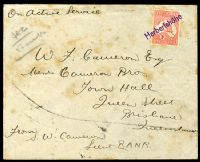 On Active Service
Herbertshöhe
W. F. Cameron Esq
Messrs Cameron Bros
Town Hall
Queen Street
Brisbane
Queensland
From S. W. Cameron
Lieut RANR.